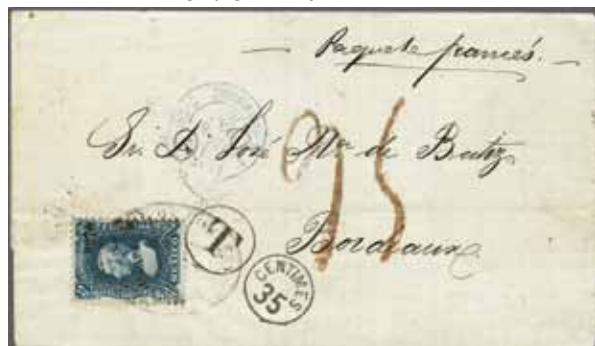 Paquete francés.
Sr. D. José Ma de Batiz
95
T
Bordeaux
CENTIMES
35